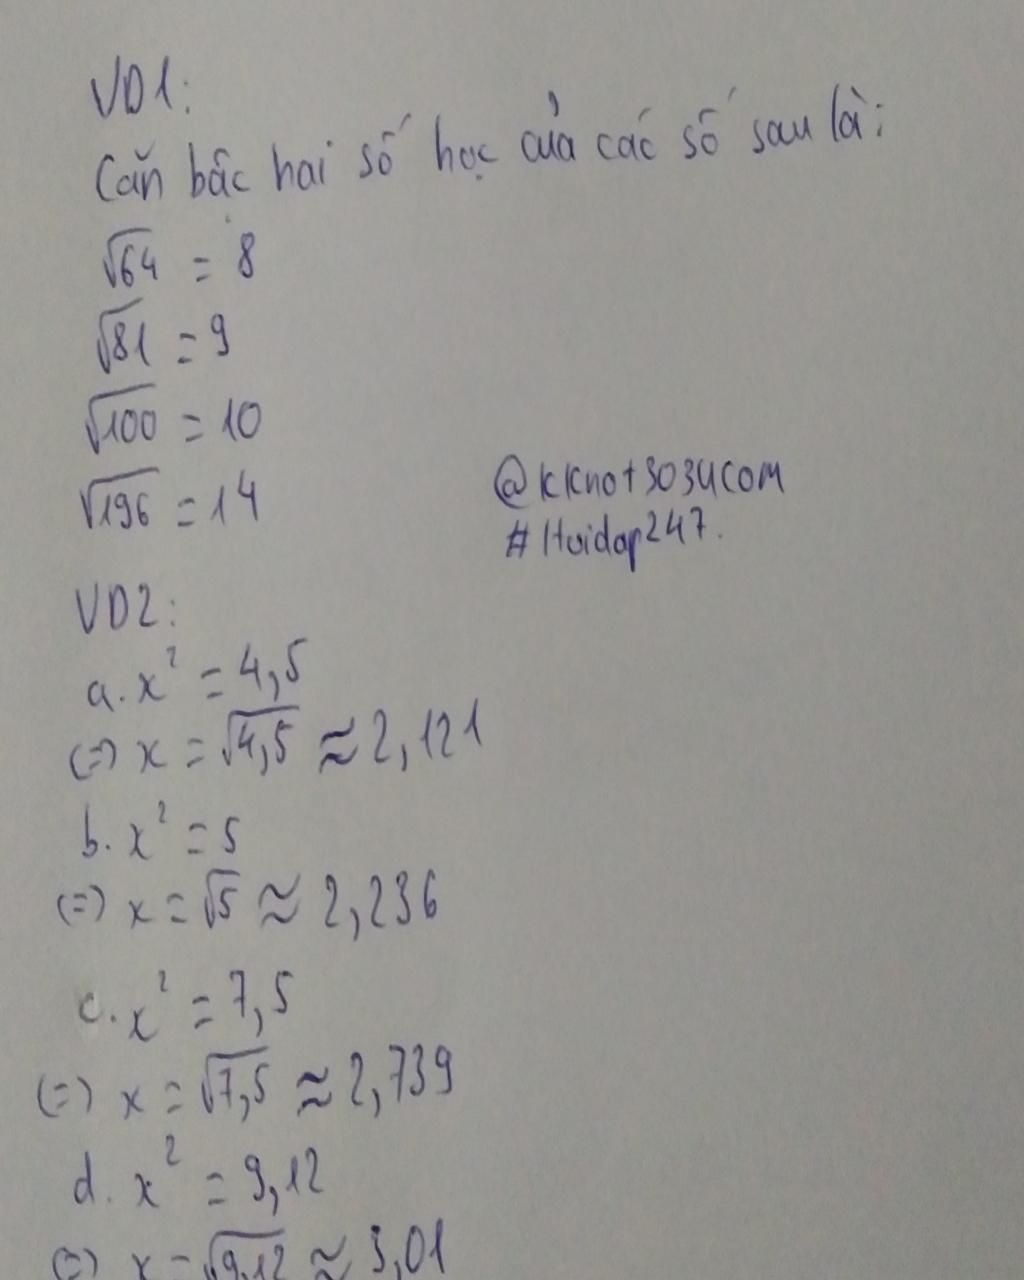 VD1:
Căn bậc hai số học của các số sau là:
√64 = 8
√81 = 9
√100 = 10
√196 = 14
@kknot3034com
#Hoidap247.
VD2:
a. x² = 4,5
(=) x = √4,5 ≈ 2,121
b. x² = 5
(=) x = √5 ≈ 2,236
c. x² = 7,5
(=) x = √7,5 ≈ 2,739
d. x² = 9,12
(=) x = √9,12 ≈ 3,01